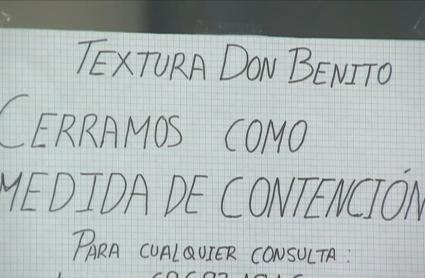 TEXTURA DON BENITO
CERRAMOS COMO
MEDIDA DE CONTENCIÓN
PARA CUALQUIER CONSULTA: